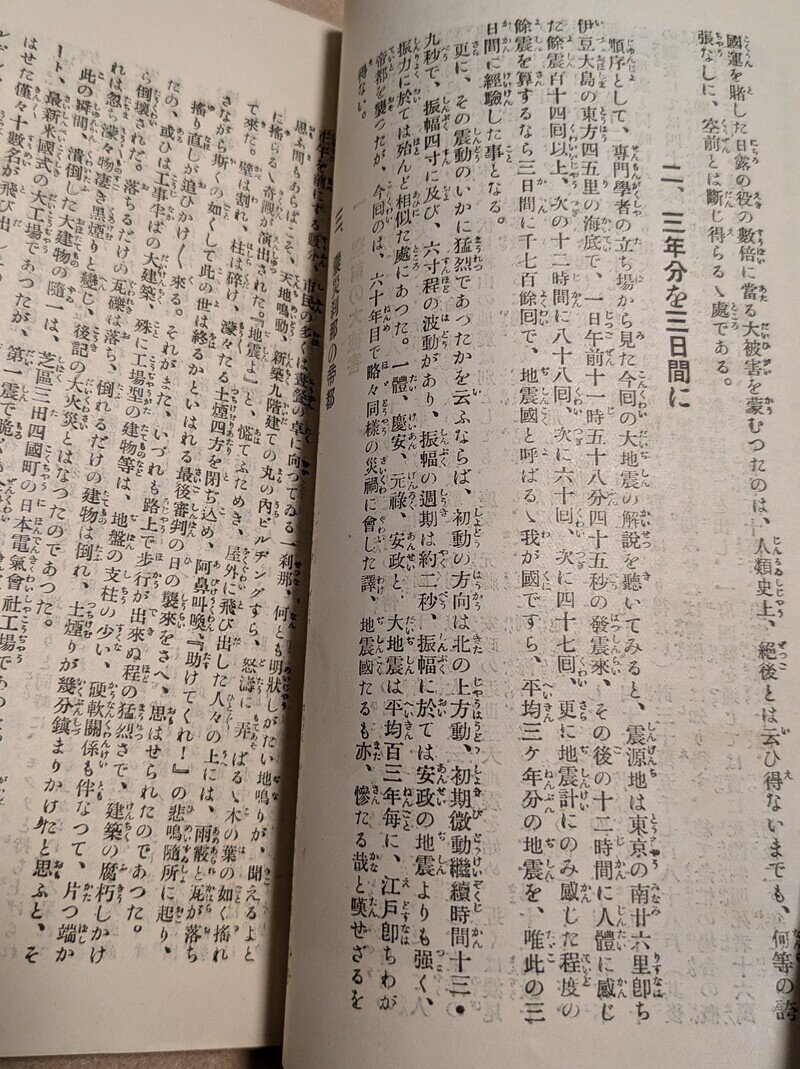 國運を賭した日露の役の數倍に當る大被害を蒙むつたのは、人類史上、絕後とは云ひ得ないまでも、何等の誇
張なしに、空前とは斷じ得らるゝ處である。
二、三年分を三日間に
順序として、專門學者の立ち場から見た今回の大地震の解說を聽いてみると、震源地は東京の南廿六里卽ち
伊豆大島の東方四五里の海底で、一日午前十一時五十八分四十五秒の發震來、その後の十二時間に人體に感じ
た餘震百十四回以上、次の十二時間に八十八回、次に六十回、次に四十七回、更に地震計にのみ感じた程度の
餘震を算するなら三日間に千七百餘回で、地震國と呼ばるゝ我が國ですら、平均三ケ年分の地震を、唯此の三
日間に經驗した事となる。
更に、その震動のいかに猛烈であつたかを云ふならば、初動の方向は北の上方動、初期微動繼續時間十三・
九秒で、振幅四寸に及び、六寸程の波動があり、振幅の週期は約二秒、振幅に於ては安政の地震よりも强く、
振力に於ては殆んど相似た處にあつた。一體、慶安、元祿、安政と、大地震は平均百三年每に、江戶卽ちわが
帝都を襲つたが、今回のは、六十年目で略々同樣の災禍に會した譯、地震國たるも亦、慘たる哉と嘆せざるを
得ない。
の帝都
市民の多くは
の卓に向つてゐる一刹那、何とも明狀しがたい地鳴りが、聞えるよと
思ふ間もあらばこそ、天地鳴動、新築九階建ての丸の內ビルヂングすら、怒濤に弄ばるゝ木の葉の如く搖れ
に搖らるゝ奇觀が演出された。『地震よ』と、慌てふためき、屋外に飛び出した人々の上には、雨霰と瓦が落ち
て來た。壁は割れ、柱は碎け、濛々たる土煙四方を閉ぢ込め、阿鼻叫喚、『助けてくれ!』の悲鳴隨所に起り、
さながら斯くの如くして此の世は終るかといはれる最後審判の日の襲來をさへ、思はせられたのであつた。
搖り直しが追ひかけく來る。それがまた、いづれも路上で步行が出來ぬ程の猛烈さで、建築の腐朽しかけ
たの、或ひは工事半ばの大建築、殊に工場型の建物等は、地盤の支柱の少い、硬軟關係も伴なつて、片つ端か
ら倒壞された。落ちるだけの瓦礫は落ち、倒れるだけの建物は倒れ、土煙りが幾分鎭まりかけたと思ふと、そ
れは忽ち濛々物凄き黑煙りと變じ、後記の大火災とはなつたのであつた。
此の瞬間、潰倒した大建物の隨一は、芝區三田四國町の日本電氣會社工場であつた。
ート、最新米國式の大工場であつたが、第一震で脆く
はせた僅々十數名が飛び出し